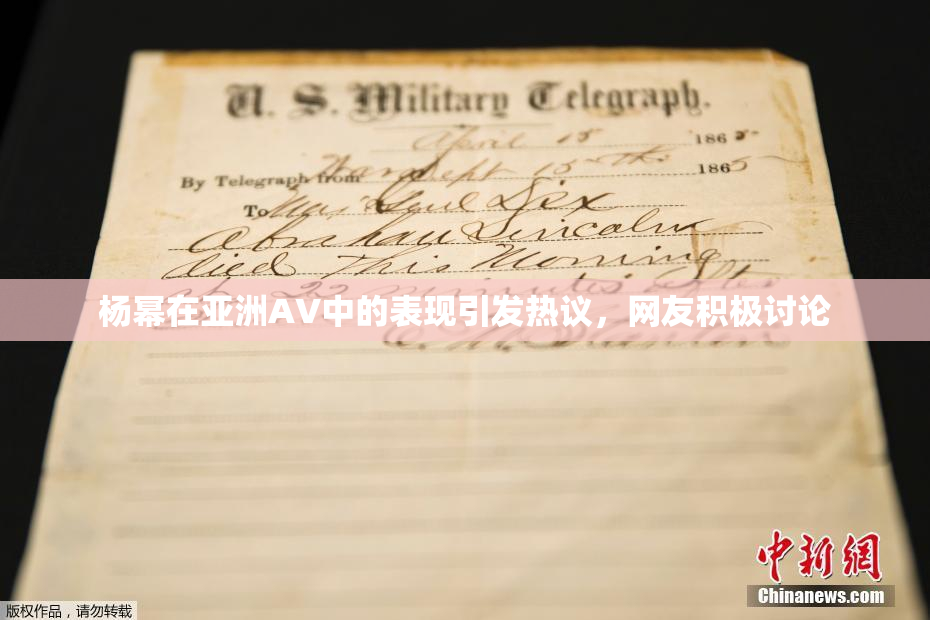 U. S. Military Telegraph.
April 15 1865
By Telegraph from War Dept 15th 1865
To Maj Genl Dix
Abraham Lincoln
died This Morning
at 22 minutes after
杨幂在亚洲AV中的表现引发热议，网友积极讨论
E. M. Stanton
中新网
Chinanews.com
版权作品，请勿转载